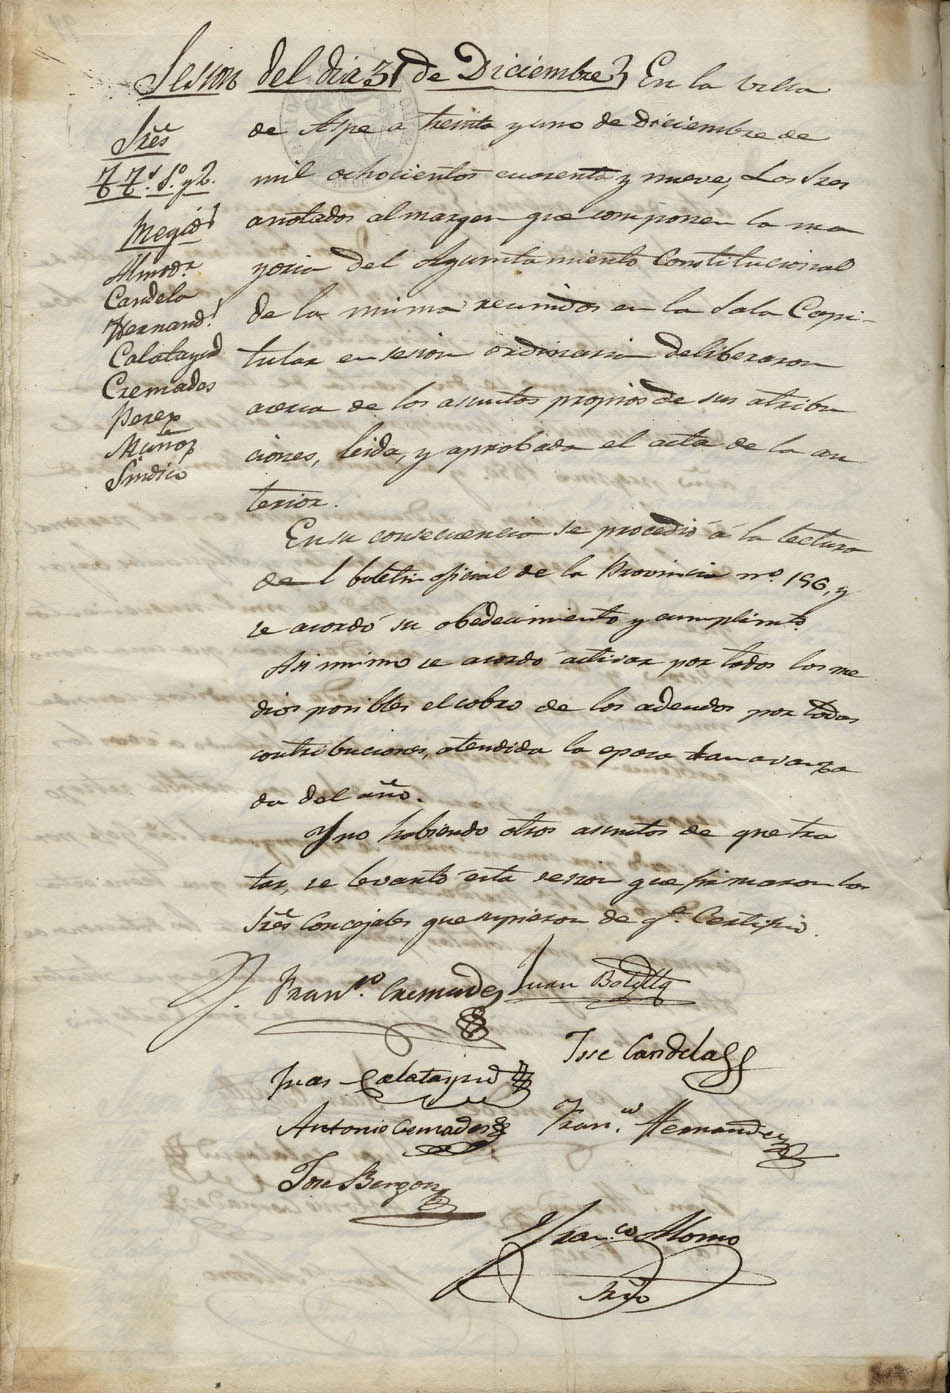 Sesion del dia 31 de Diciembre} En la villa
de Aspe a treinta y uno de diciembre de
mil ochocientos cuarenta y nueve, Los Sres
anotados al margen que componen la ma
yoria del Ayuntamiento Constitucional
de la misma reunidos en la Sala Capi-
tular en sesion ordinaria deliberaron
acerca de los asuntos propios de sus atribu
ciones, leida, y aprobada el acta de la an
terior.
Sres
TT.s 1.º y 2.
Regid.s
Almod.r
Candela
Hernand.
Calatayud
Cremades
Perez
Muñoz
Sindico
En su consecuencia se procedió á la lectura
del boletin oficial de la Provincia nº. 156, y
se acordó su obedecimiento y cumplimto.
Asi mismo se acordó activar por todos los me
dios posibles el cobro de los adeudos por todas
contribuciones, atendida la epoca tan avanza
da del año.
Y no habiendo otros asuntos de que tra
tar, se levantó esta sesion que firmaron los
Sres Concejales que supieron de q.e Certifico.
Fran.co Cremades Juan Botella
Jose Candela
Juan Calatayud
Antonio Cremades Fran.co Hernandez
Jose
Fran.co Alonso
Srio